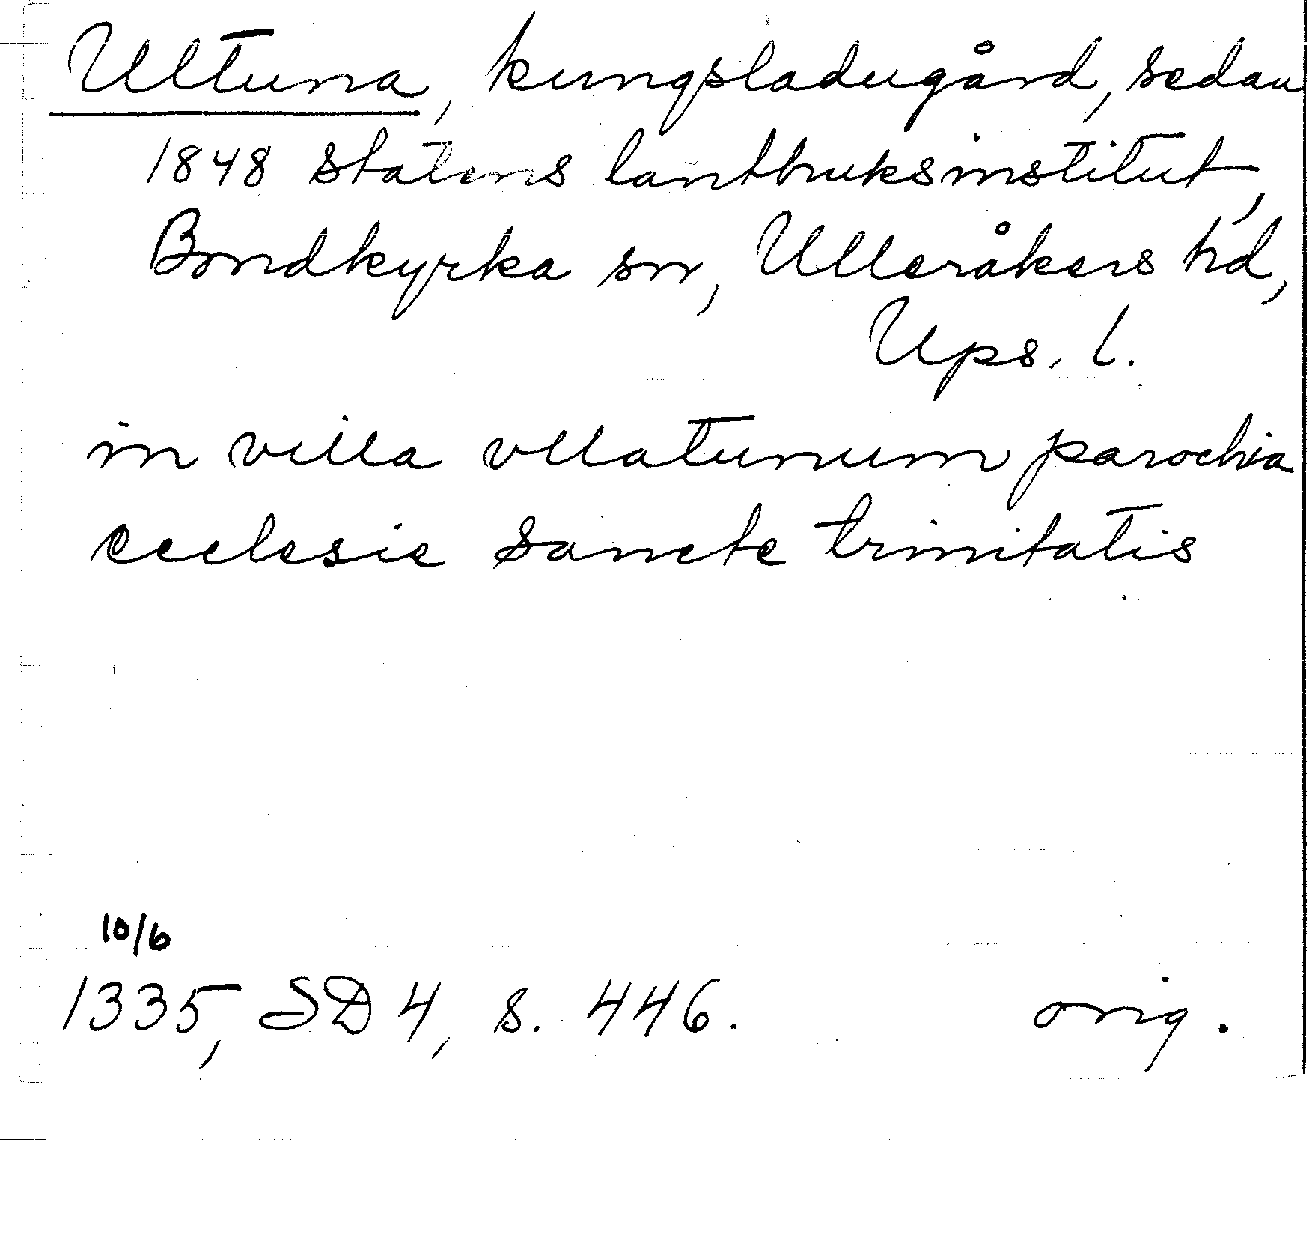 Ultuna, kungsladugård, sedan
1848 statens lantbruksinstitut,
Bondkyrka sn, Ulleråkers hd,
Ups. l.
in villa vllatunum parochia
ecclesie sancte trinitatis
10/6
1335, SD 4, s. 446. orig.